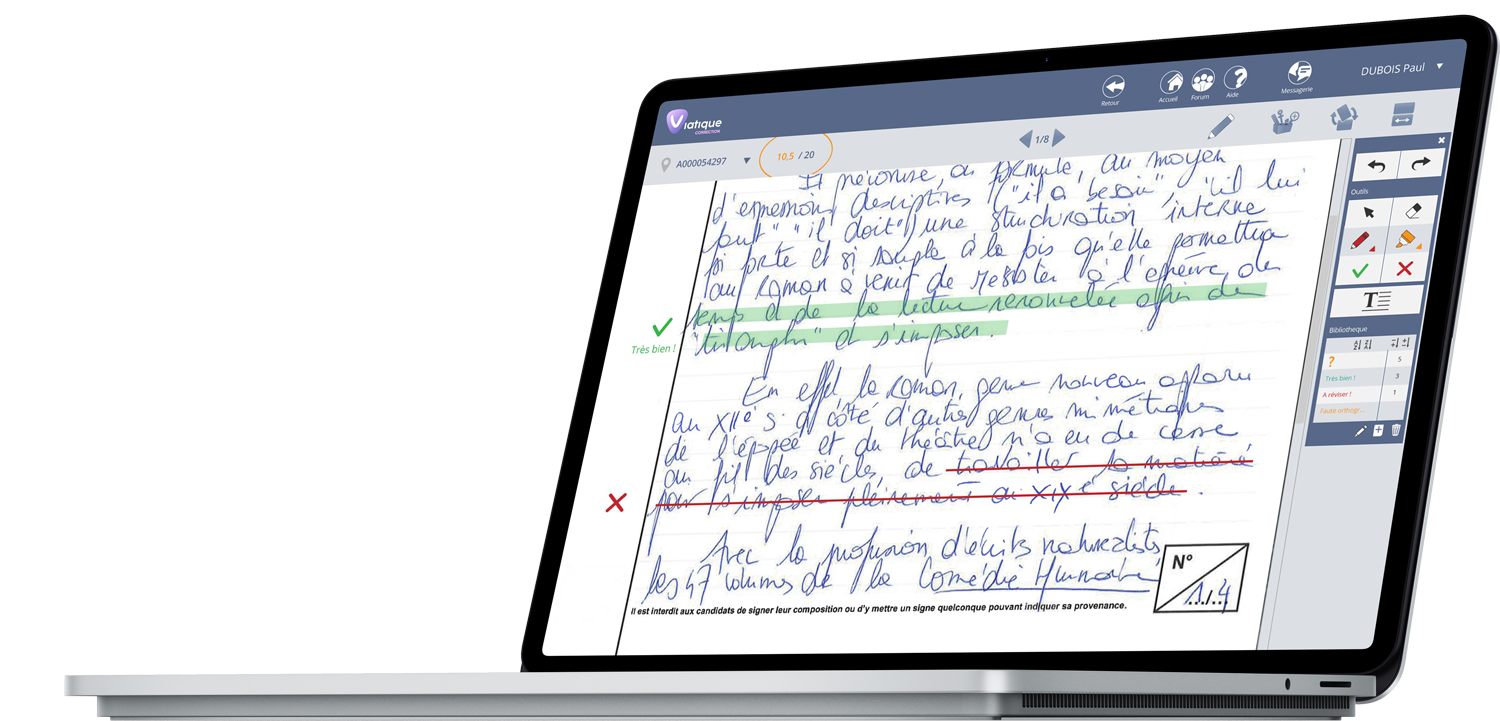 Viatique
CORRECTION
Retour
Accueil
Forum
Aide
Messagerie
DUBOIS Paul
A000054297
10,5 / 20
1/8
Il préconise, ou formule, au moyen
d'expressions descriptives ("il a besoin", "il lui
faut" "il doit") une structuration interne
si forte et si souple à la fois qu'elle permettra
au roman à venir de résister à l'épreuve du
temps et de la lecture renouvelée afin de
"triompher" et s'imposer.
Très bien !
En effet, le roman, genre nouveau apparu
au XIIè s. à côté d'autres genres mimétiques
de l'épopée et du théâtre n'a eu de cesse,
au fil des siècles, de travailler la matière
pour s'imposer pleinement au XIXè siècle.
Avec la profusion d'écrits naturalistes
les 47 volumes de la Comédie Humaine
N°
1/4
Il est interdit aux candidats de signer leur composition ou d'y mettre un signe quelconque pouvant indiquer sa provenance.
Outils
T
Bibliotheque
? 5
Très bien ! 3
A réviser ! 1
Faute orthogr...